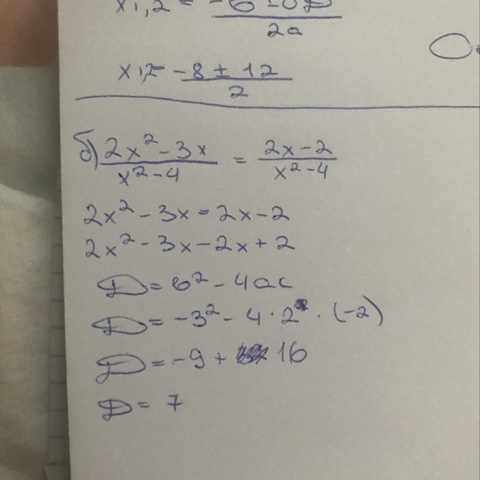 x1,2 = -b ± √D / 2a
x1,2 = -8 ± 12 / 2
б) 2x² - 3x / x² - 4 = 2x - 2 / x² - 4
2x² - 3x = 2x - 2
2x² - 3x - 2x + 2
D = b² - 4ac
D = -3² - 4 · 2 · (-2)
D = -9 + 16
D = 7